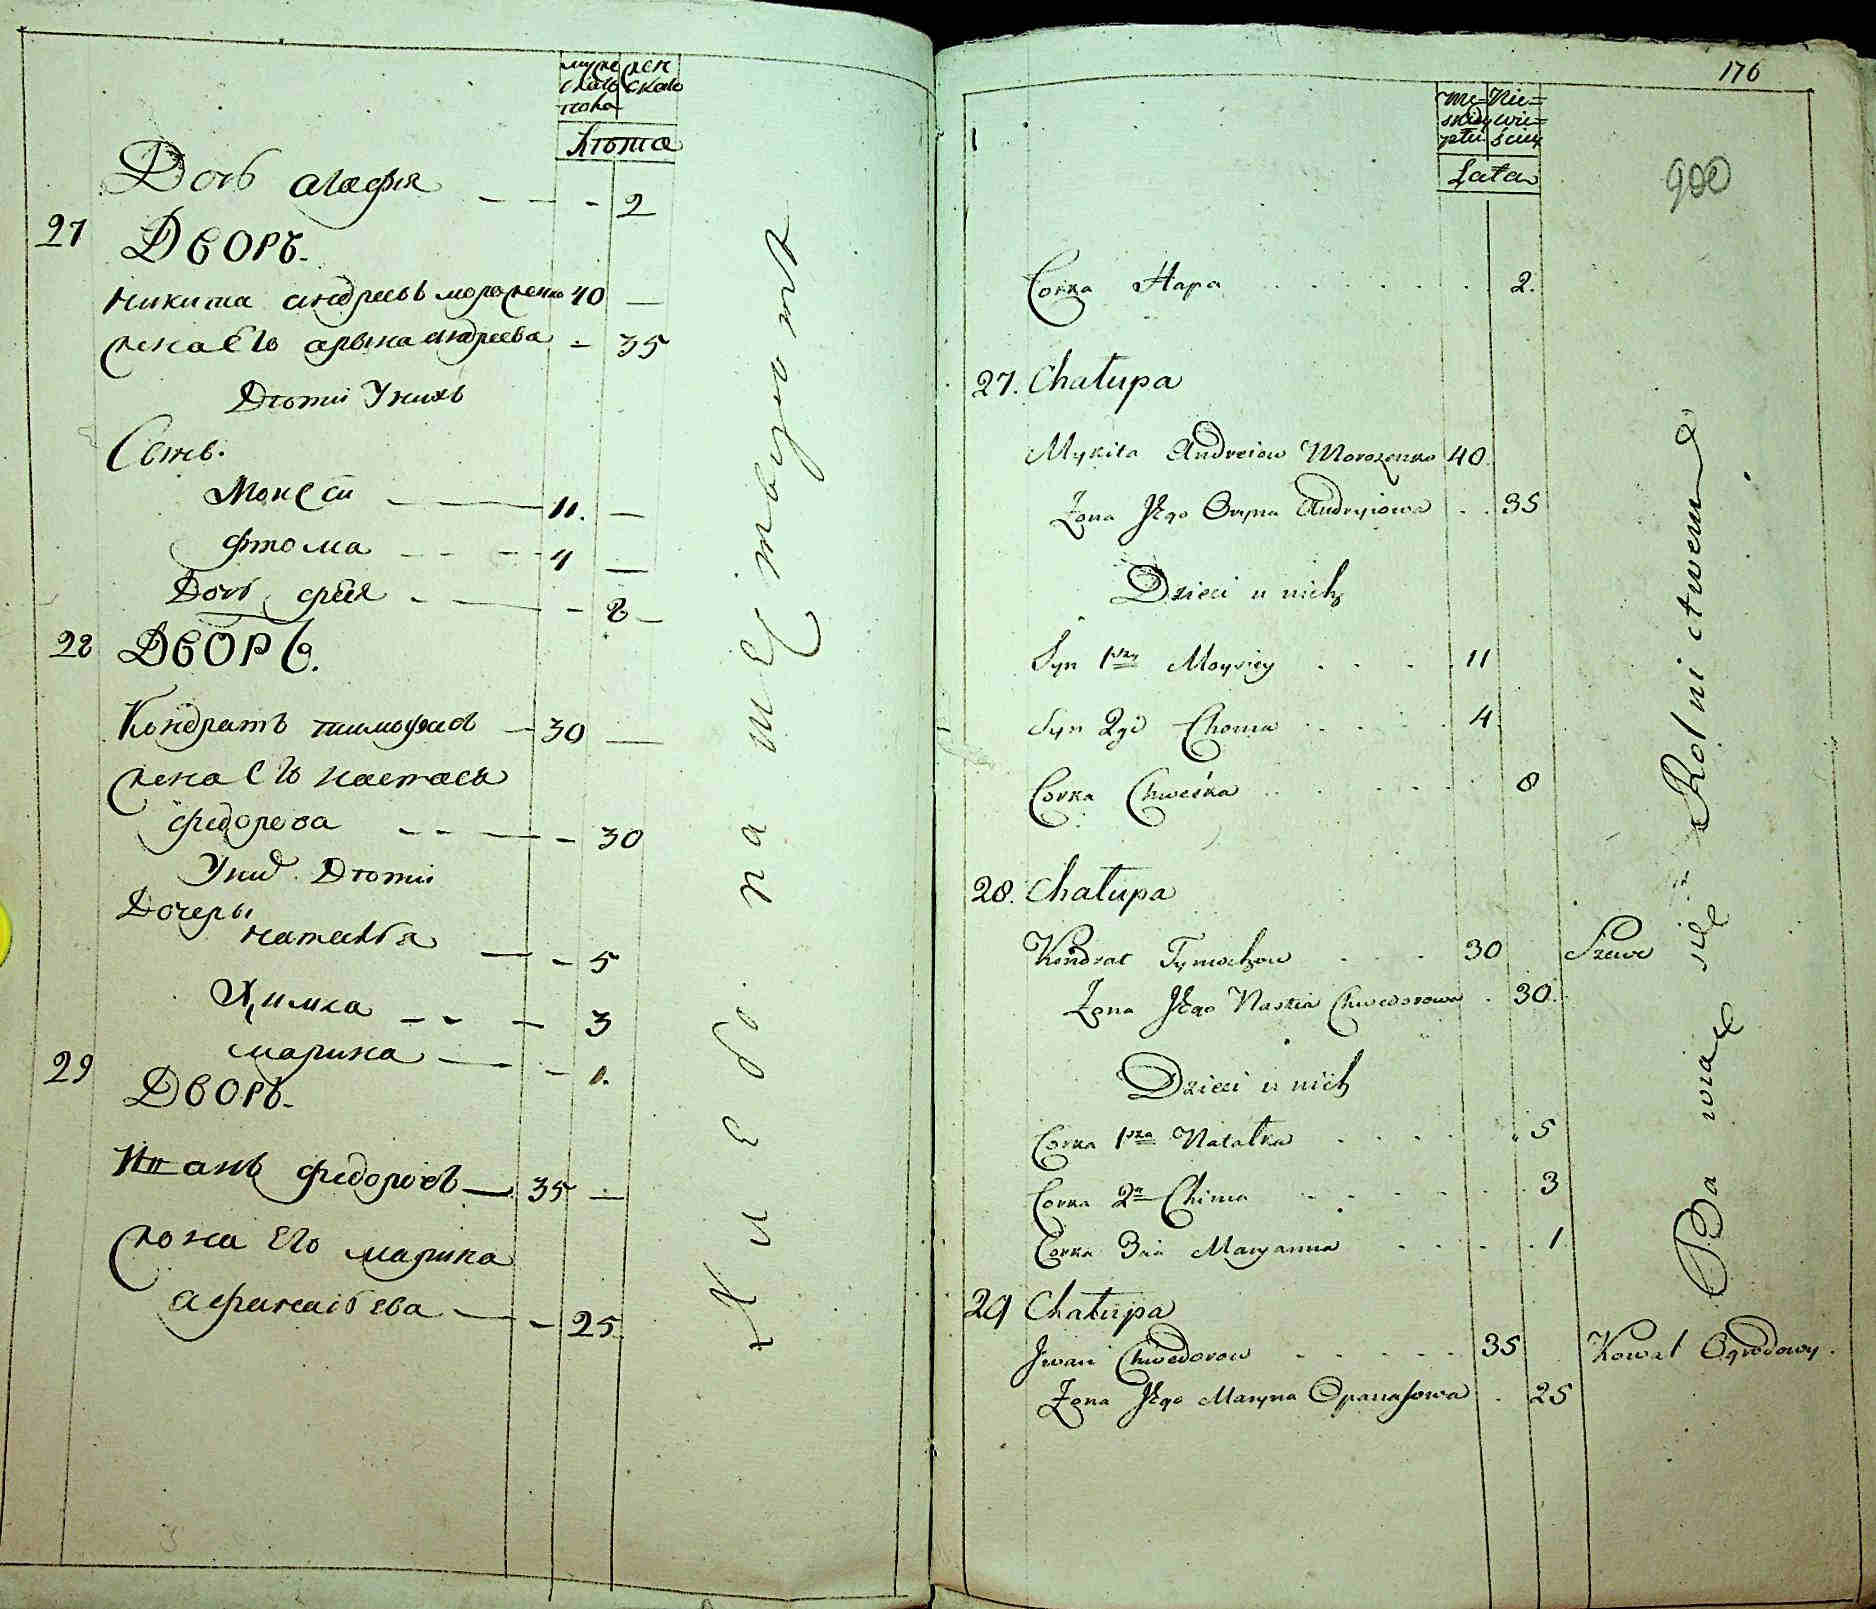 муже жен
скаго скаго
пола
Лѣта
Дочь агафия — — - 2
27 Дворъ.
никита андреевъ морозенко 40 —
жена Его арына андреева - 35
Дѣти Унихъ
Сынъ.
Моисѣй — 11. —
фтома - - - 4 —
Дочь фея - — - 8 —
28 Дворъ.
Кондратъ тимофѣевъ — 30 —
жена Его настася
федорова - - — - 30
Унихъ Дѣти
Дочеры
наталья — - 5
Химка - - - 3
марина — - 1.
29 Дворъ.
Иванъ федоровъ — 35 —
жона Его марина
афанасьева — - 25
Хлебопашествуютъ
176
Mę= Nie=
skiey wie=
płci ściey
Lata
900
Corka Hapa . . . . . . . 2.
27. Chałupa
Mykita Andreiow Morozenko 40.
Żona Jego Oryna Andryiowa . . 35
Dzieci u nich
Syn 1szy Moysiey . . . . 11
Syn 2gi Choma . . . . 4
Corka Chweśka . . . . . 8
28. Chałupa
Kondrat Tymochow . . . 30 Szewc
Żona Jego Nastia Chwedorowa . 30.
Dzieci u nich
Corka 1sza Natałka . . . . . 5
Corka 2a Chima . . . . . 3
Corka 3cia Maryanna . . . . . 1
29 Chałupa
Jwan Chwedorow . . . . . . 35 Kowal Ogrodowy.
Żona Jego Maryna Opanasowa . 25
Bawią się Rolnictwem